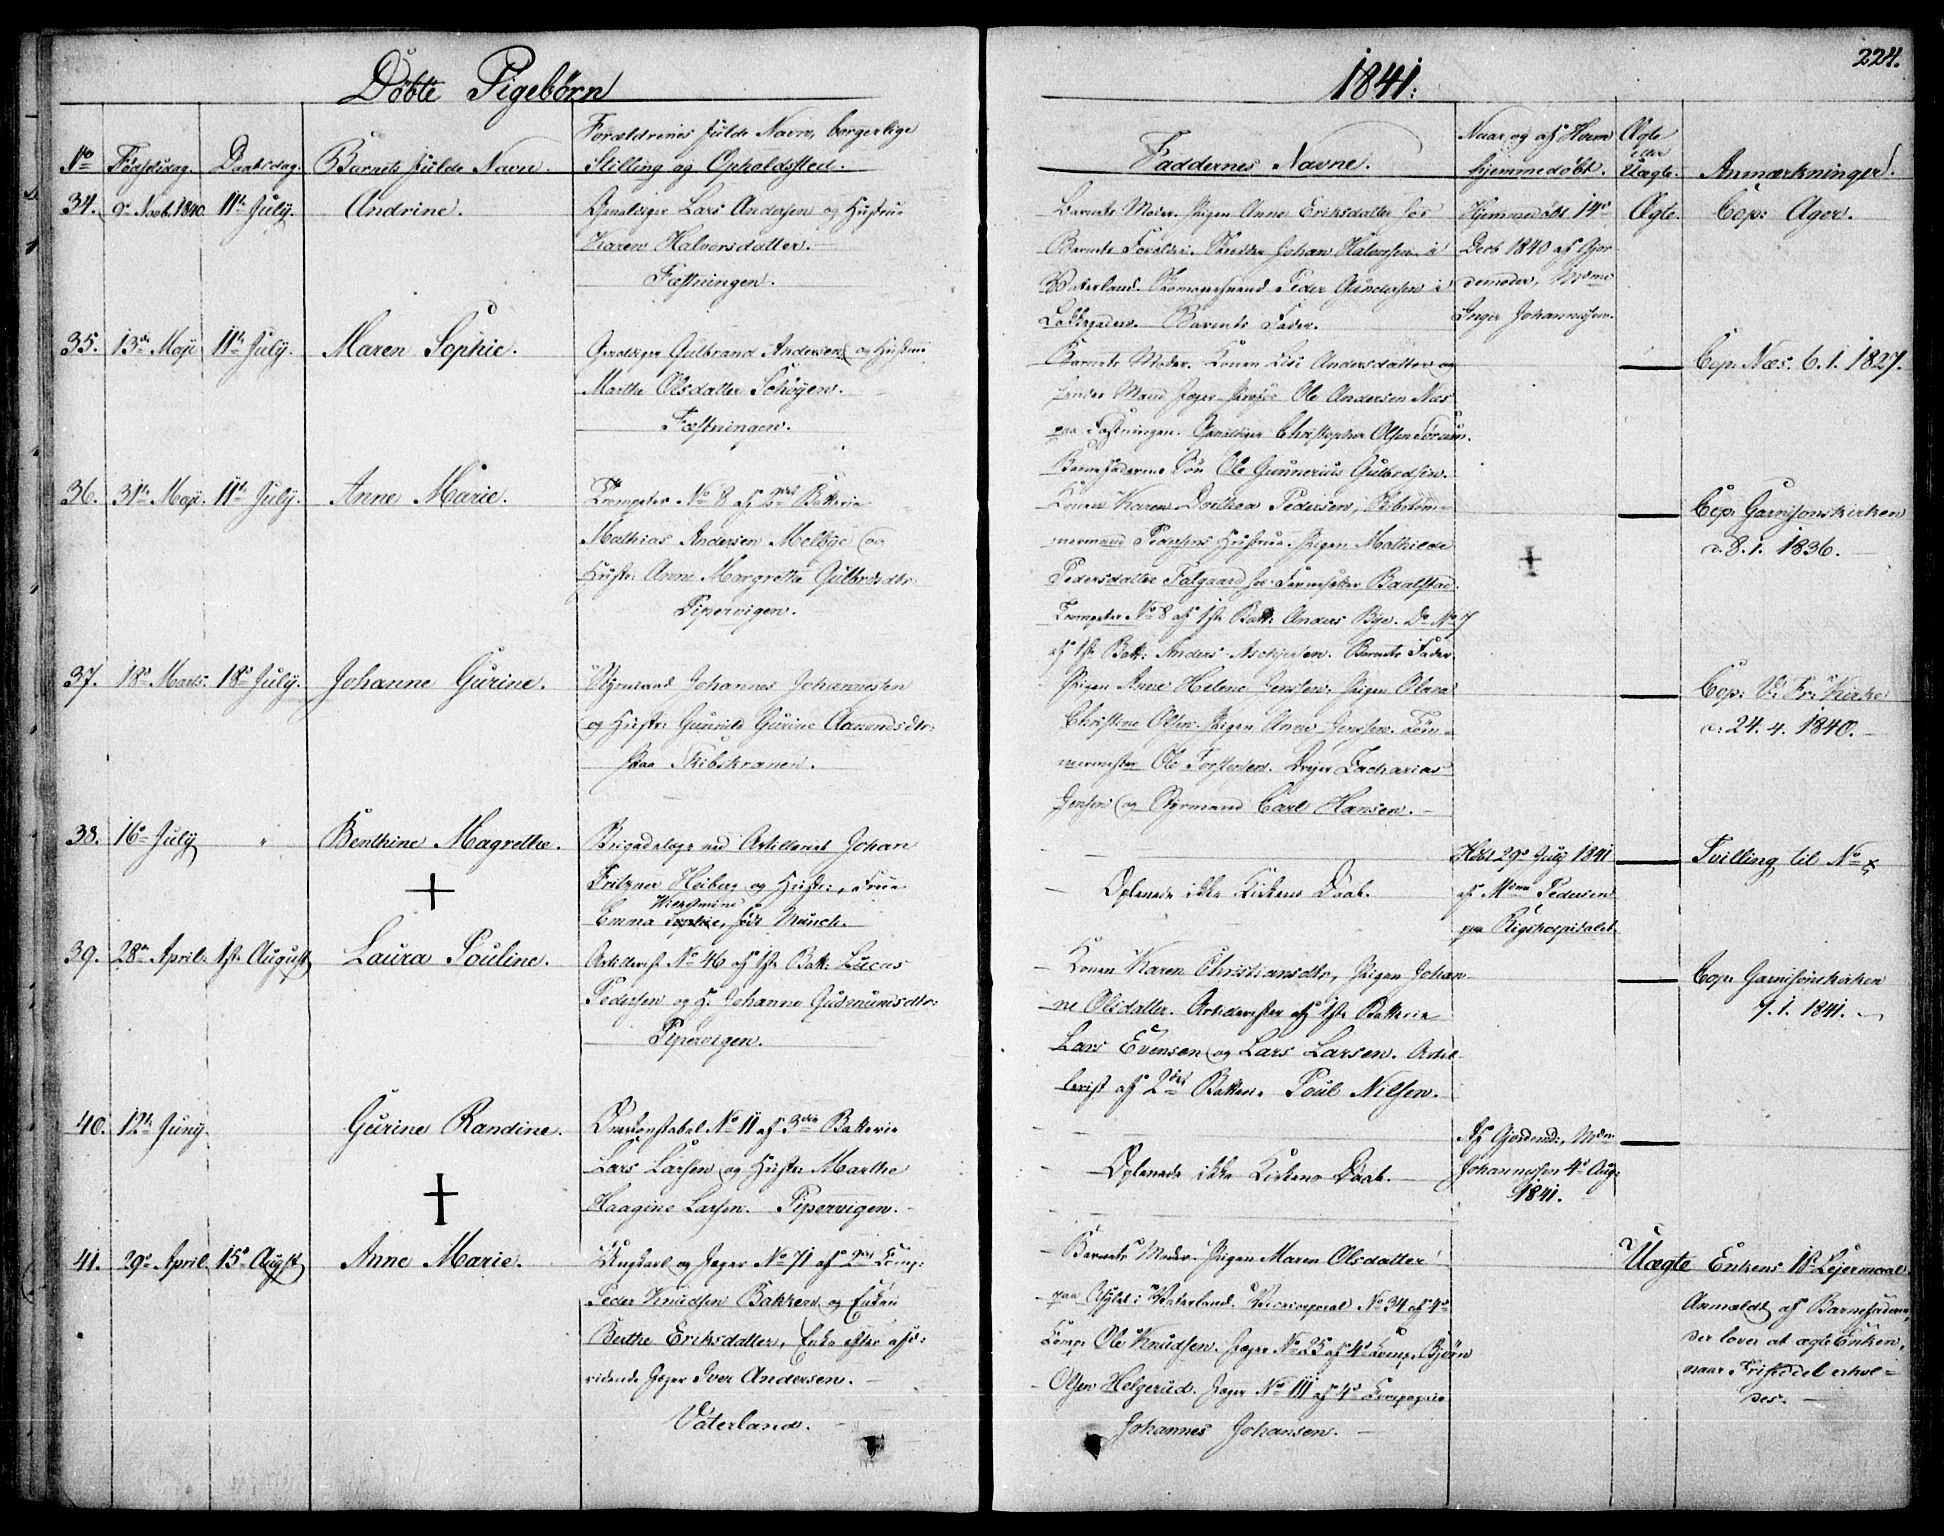 224.
Döbte Pigebörn
1841.
No
Födselsdag.
Daabsdag.
Barnets fulde Navn.
Forældrenes fulde Navn, borgerlige
Stilling og Opholdssted.
Faddernes Navne.
Naar og af Hvem
hjemmedöbt.
Ægte
eller
Uægte.
Anmærkninger.
34.
9de Novb. 1840.
11te July.
Andrine.
Lars Andersen og Hustrue
Karen Halvorsdatter.
Fæstningen.
Barnets Moder. Pigen Anne Eriksdatter hos
Barnets Forældre. Johan Halvorsen i
Vaterland. Peder Gundersen i
Barnets Fader.
Hjemmedöbt 14de
Decb 1840 af Gjor-
demoder, Mdme
Inger Johannessen.
Ægte.
Cop: Ager.
35.
13de Maji
11te July.
Maren Sophie.
Gulbrand Andersen og Hustrue
Marthe Olsdatter Schöyen.
Fæstningen.
Barnets Moder. Konen Lisi Andersdatter og
hendes Mand Jæger Ole Andersen Næs
paa Fæstningen. Christopher Olsen Sörum.
Barnefaderens Sön Ole Gunnerius Gulbrdsen.
Cop. Næs. 6. 1. 1827.
36.
31te Maji.
11te July.
Anne Marie.
Trompeter No 8 af Batterie
Mathias Andersen Melbye og
Hustr: Anne Margrethe Gulbrdsdtr.
Pipervigen.
Konen Karen Dorthea Pedersen, Skibstöm-
mermand Pedersens Hustrue. Pigen Mathilde
Pedersdatter Falgaard hos Baalstad.
Trompeter No 8 af 1ste Batt: Anders Bye. Do No 7
af 1ste Batt: Anders Aschjersen. Barnets Fader.
Cop: Garnisonskirken
d. 8. 1. 1836.
37.
18de Marts.
18de July.
Johanne Gurine.
Styrmand Johannes Johannesen
og Hustr: Gunnild Gurine Aamundsdtr:
paa Skibskranen.
Pigen Anne Helene Jensen. Pigen Olava
Christine Olsen. Pigen Anne Jenssen. Töm-
mermester Ole Torstensen. Drejer Zacharias
Jensen og Styrmand Carl Hansen.
Cop: V: Fr: Kirke
d: 24. 4. 1840.
38.
16de July
"
Benthine Magrethe.
Brigadelæge ved Artilleriet Johan
Fritzner Heiberg og Hustr:, Frue
Emma Wilhelmine Sophie, född Münch.
Oplevede ikke Kirkens Daab.
Hdbt 29de July 1841
af Mdme Pedersen
paa Rigshospitalet.
Tvilling til No
39.
28de April.
1ste August
Laura Pouline.
Artillerist No 46 af 1ste Batt: Lucas
Pedersen og H. Johanne Gudmundsdtr:
Pipervigen.
Konen Karen Christiansdtr, Pigen Johan-
ne Olsdatter. Artillerister af 1ste Batterie
Lars Evensen og Lars Larsen. Artil-
lerist af 2det Batterie Poul Nilsen.
Cop: Garnisonskirken
7. 1. 1841.
40.
12te Juny.
Gurine Randine.
Overkonstabel No 11 af 3die Batterie
Lars Larsen og Hustr Marthe
Haagine Larsen. Pipervigen.
Oplevede ikke Kirkens Daab.
Af Gjordemd:, Mdm
Johannessen 4de Aug:
1841.
41.
29de April.
15de August
Anne Marie.
Ungkarl og Jæger No 71 af 2det Comp:
Peder Knudsen Bakken og Enken
Berthe Eriksdatter, Enke efter afd:
vidende Jæger Iver Andersen.
Vaterland.
Barnets Moder. Pigen Maren Olsdatter
paa Asylet i Vaterland. Vicecorporal No 34 af 4de
Comp. Ole Knudsen. Jæger No 25 af 4de Comp. Björn
Olsen Helgerud. Jæger No 111 af 4de Compagnie
Johannes Johansen.
Uægte
Enkens 1ste Lejermaal.
Anmeldt af Barnefaderen,
der lover at ægte Enken,
naar Friseddel erhol-
des.